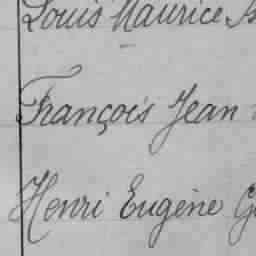 Louis Maurice
François Jean
Henri Eugène